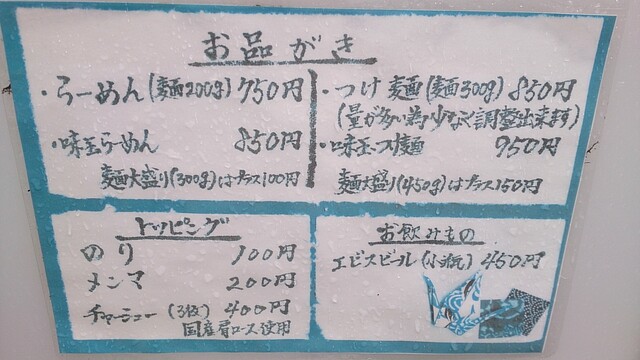 お品がき
・らーめん(麺200g)750円
・味玉らーめん 850円
麺大盛り(300g)はプラス100円
・つけ麺(麺300g)850円
(量が多い為少なく調整出来ます)
・味玉つけ麺 950円
麺大盛り(450g)はプラス150円
トッピング
のり 100円
メンマ 200円
チャーシュー(3枚)400円
国産肩ロース使用
お飲みもの
エビスビール(小瓶)450円